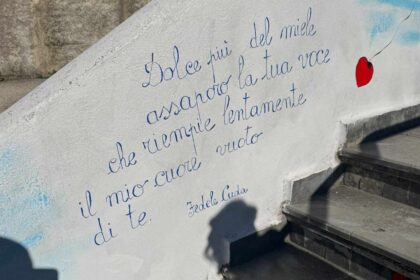 Dolce più del miele
assaporo la tua voce
che riempie lentamente
il mio cuore vuoto
di te.
Fedele Cuda